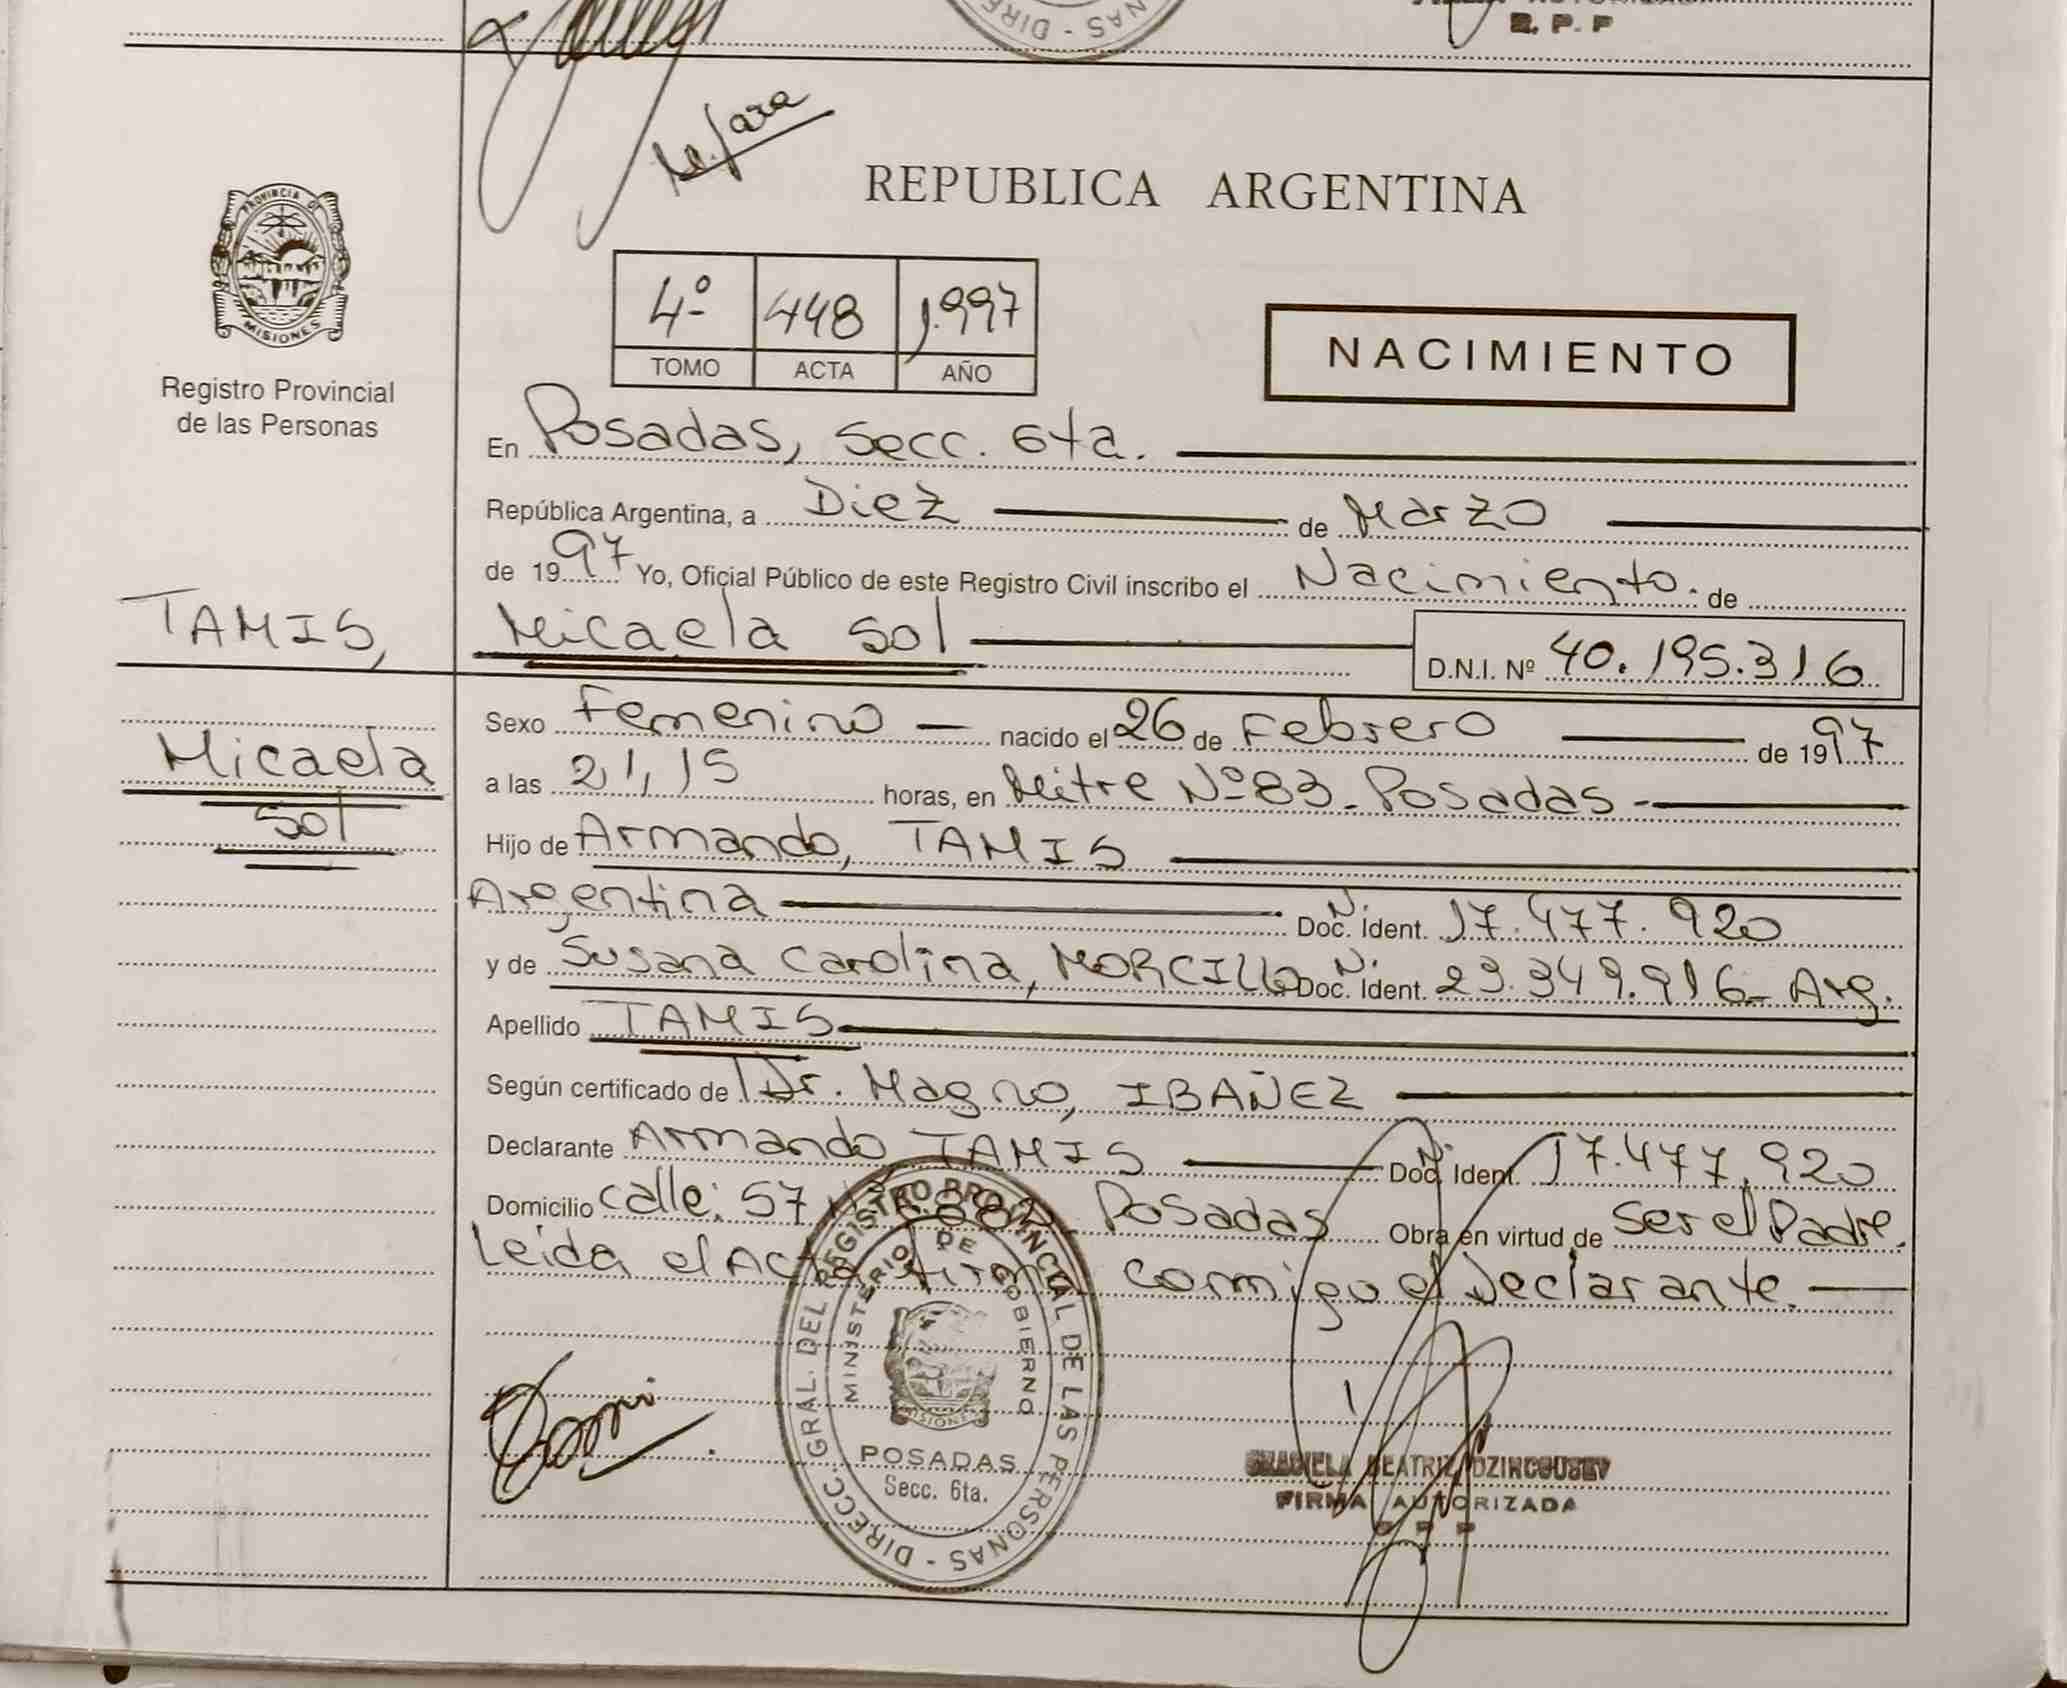 S. P. P
REPUBLICA ARGENTINA
PROVINCIA DE
MISIONES
Registro Provincial
de las Personas
4º 448 1.997
TOMO ACTA AÑO
NACIMIENTO
En Posadas, Secc. 6ta.
República Argentina, a Diez de Marzo
de 1997 Yo, Oficial Público de este Registro Civil inscribo el Nacimiento. de
TAMIS, Micaela Sol D.N.I. Nº 40.195.316
Micaela
Sol
Sexo Femenino nacido el 26 de Febrero de 1997
a las 21,15 horas, en Mitre Nº 83 - Posadas -
Hijo de Armando, TAMIS
Argentina Doc. Ident. N. 17.477.920
y de Susana Carolina, MORCILLO Doc. Ident. N. 23.349.916 - Arg.
Apellido TAMIS
Según certificado de Dr. Magno, IBAÑEZ
Declarante Armando TAMIS Doc. Ident. N. 17.477.920
Domicilio calle: 57 Posadas Obra en virtud de Ser el Padre.
Leída el Acta firma comigo el Declarante.
DIRECC. GRAL. DEL REGISTRO PROVINCIAL DE LAS PERSONAS -
MINISTERIO DE GOBIERNO
MISIONES
POSADAS
Secc. 6ta.
GRACIELA BEATRIZ
FIRMA AUTORIZADA